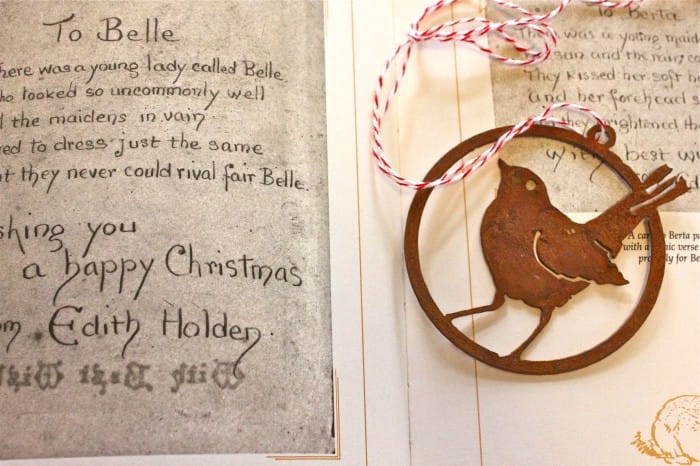 To Belle
here was a young lady called Belle
ho looked so uncommonly well
l the maidens in vain
ed to dress just the same
t they never could rival fair Belle.
shing you
a happy Christmas
om Edith Holden.
With Best Wish
To Berta
There was a young maide
sun and the rain, co
They kissed her soft
and her forehead
they brightened the
with best w
A car to Berta pa
with a mic verse
pro ly for Be